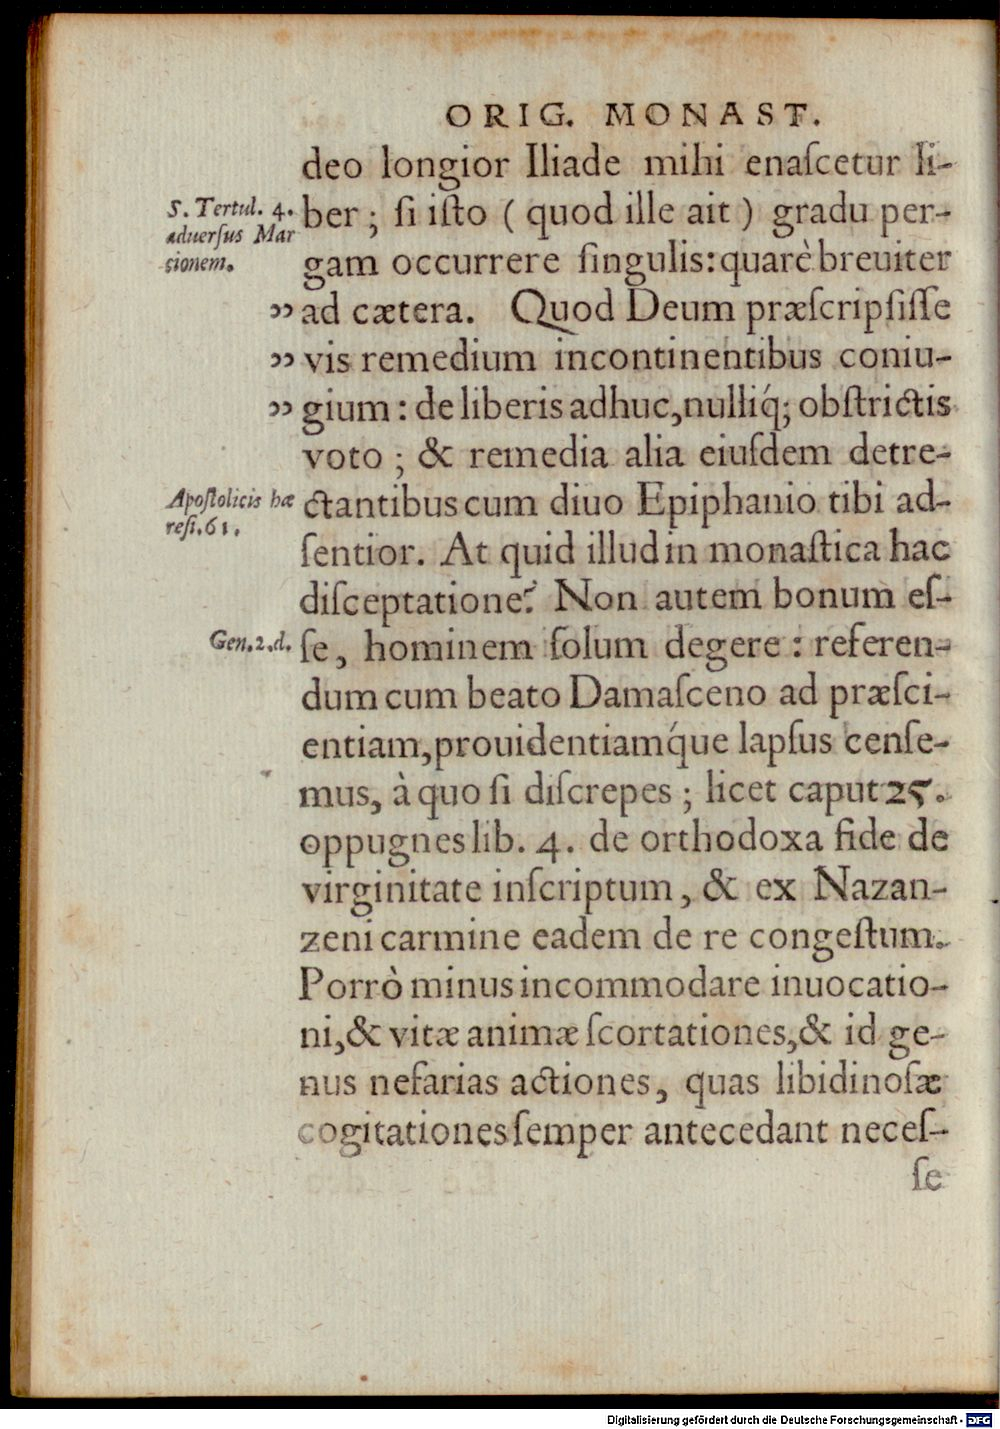 ORIG. MONAST.
deo longior Iliade mihi enaſcetur li-
S. Tertul. 4.
aduerſus Mar
cionem.
ber ; ſi iſto ( quod ille ait ) gradu per-
gam occurrere ſingulis: quarè breuiter
„ ad cætera. Quod Deum præſcripſiſſe
„ vis remedium incontinentibus coniu-
„ gium : de liberis adhuc, nulliq́; obſtrictis
voto ; & remedia alia eiuſdem detre-
Apoſtolicis hæ
reſi. 61.
ctantibus cum diuo Epiphanio tibi ad-
ſentior. At quid illud in monaſtica hac
diſceptatione? Non autem bonum eſ-
Gen. 2. d.
ſe, hominem ſolum degere : referen-
dum cum beato Damaſceno ad præſci-
entiam, prouidentiamq́ue lapſus cenſe-
mus, à quo ſi diſcrepes ; licet caput 25.
oppugnes lib. 4. de orthodoxa fide de
virginitate inſcriptum, & ex Nazan-
zeni carmine eadem de re congeſtum.
Porrò minus incommodare inuocatio-
ni, & vitæ animæ ſcortationes, & id ge-
nus nefarias actiones, quas libidinoſæ
cogitationes ſemper antecedant neceſ-
ſe
Digitalisierung gefördert durch die Deutsche Forschungsgemeinschaft - DFG